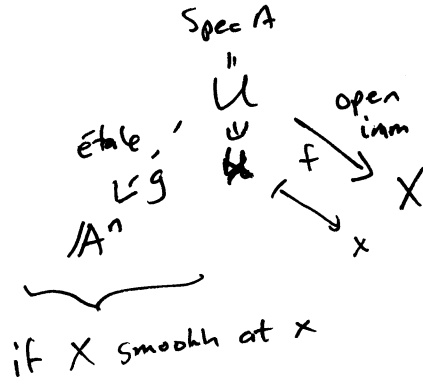 Spec A
=
U
open
imm
étale
g
f
X
𝔸ⁿ
x
if X smooth at x